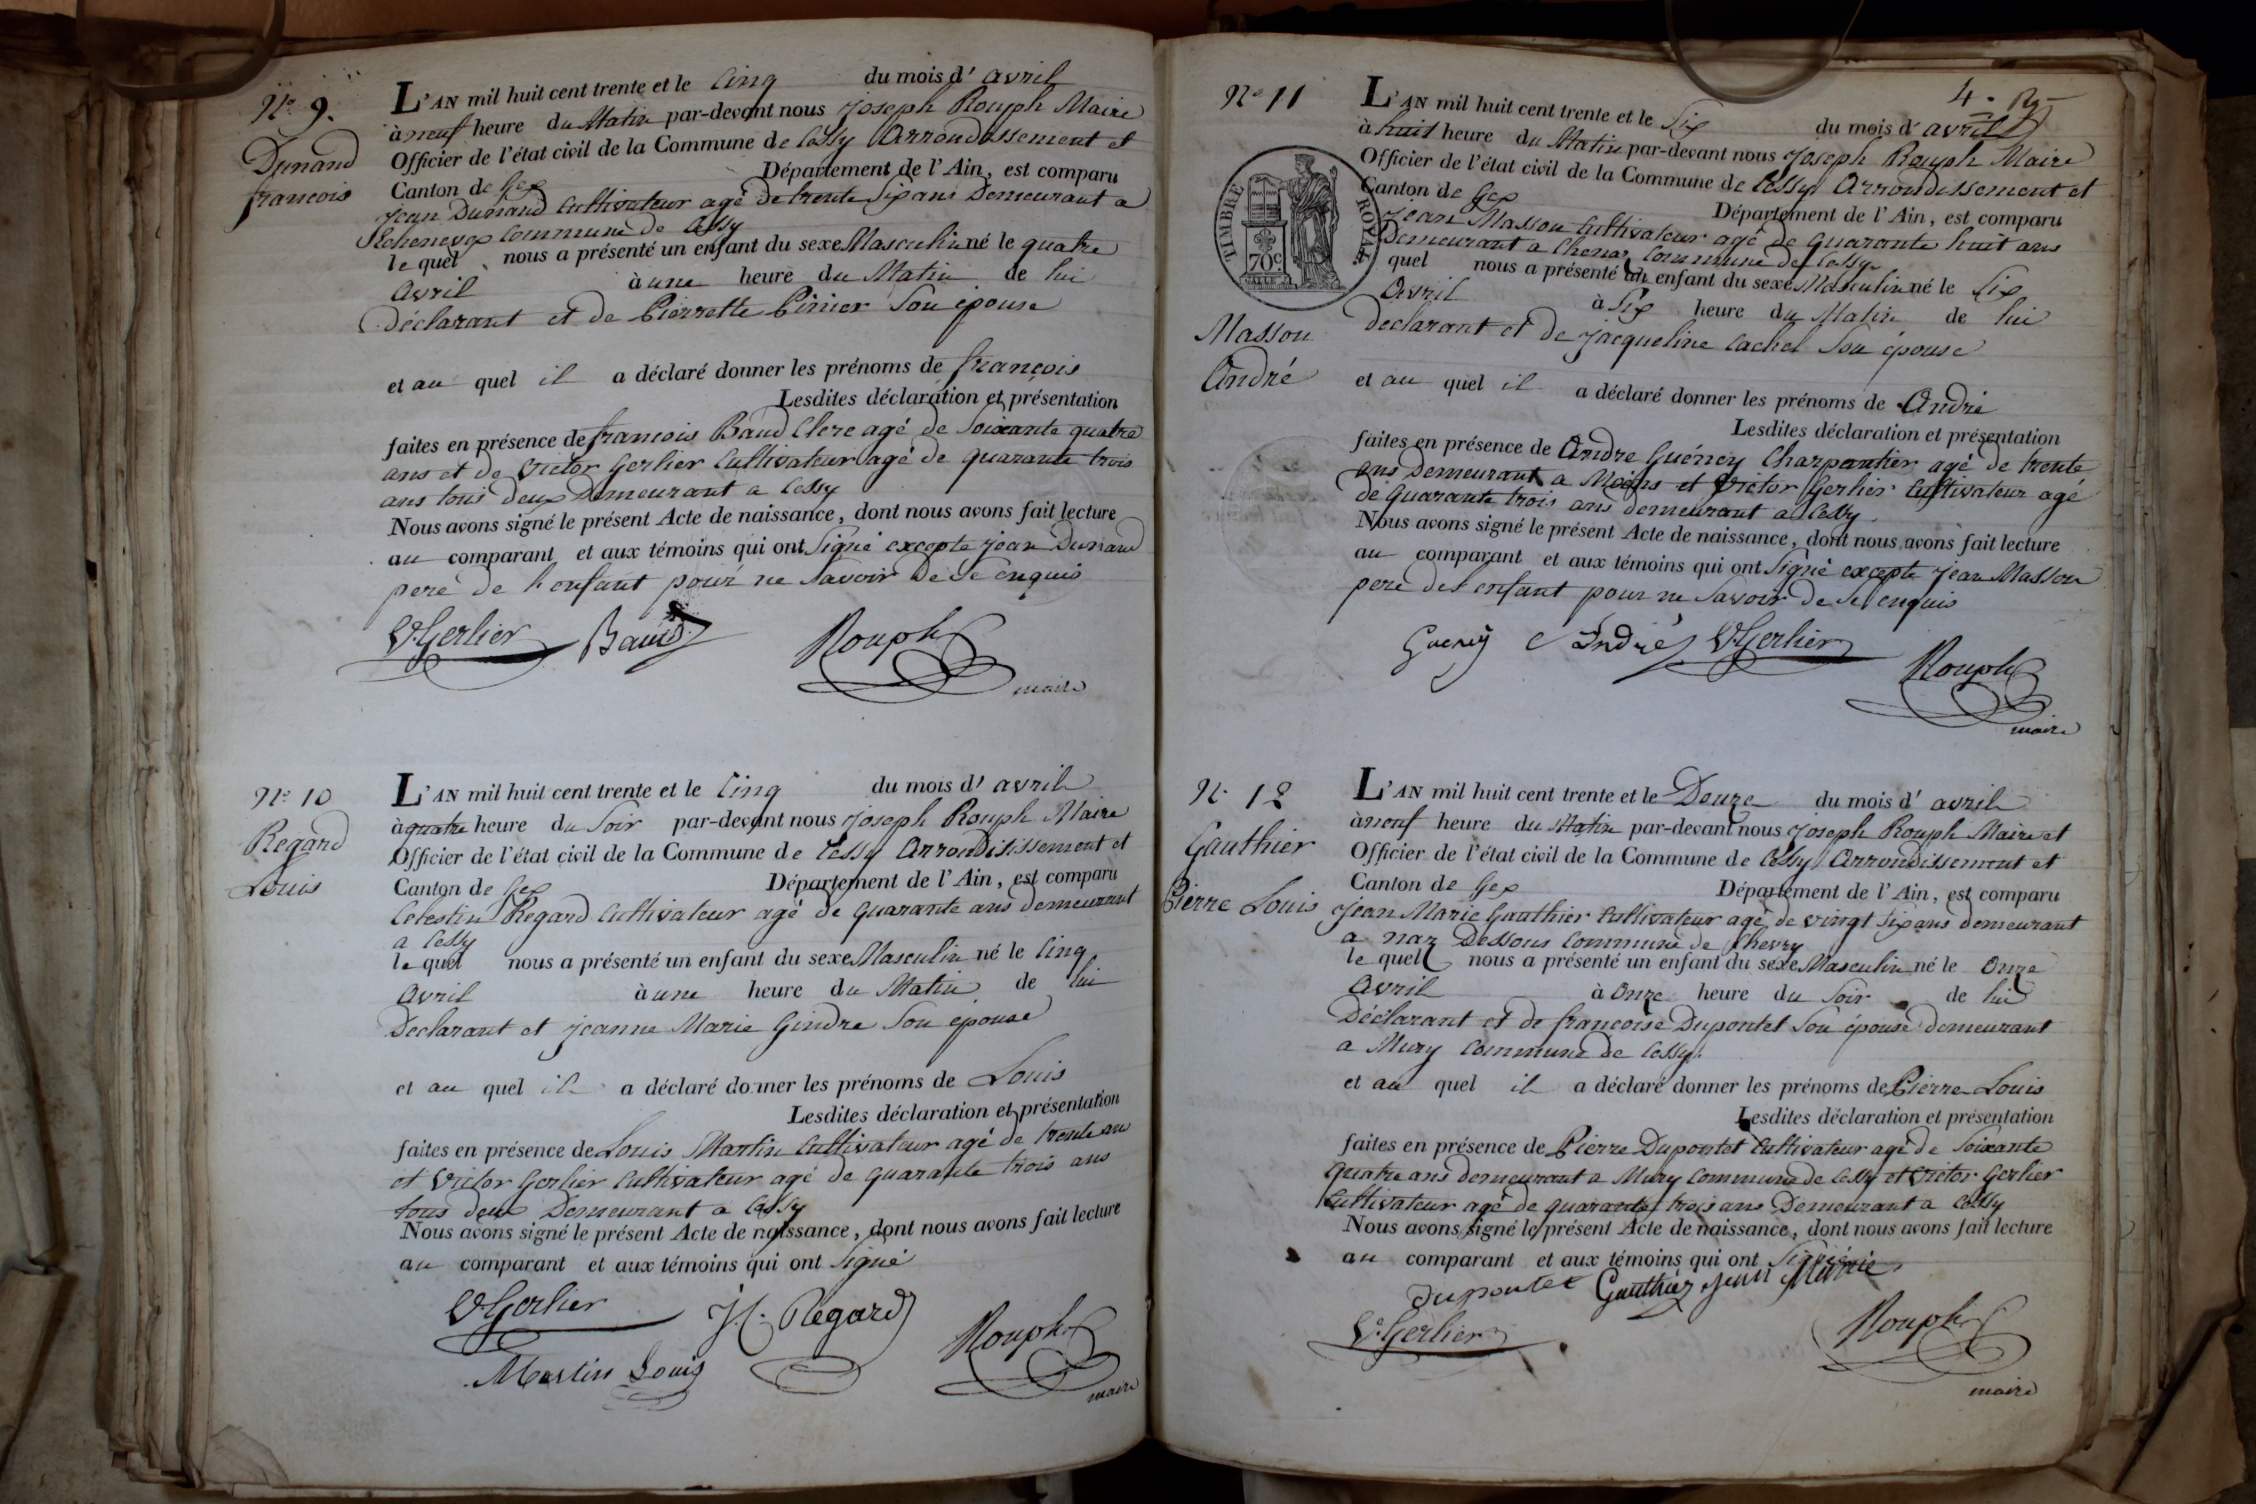 N.o 9.
Dunand
françois
L'AN mil huit cent trente et le Cinq du mois d' avril
à neuf heure du Matin par-devant nous joseph Rouph Maire
Officier de l'état civil de la Commune de Cessy Arrondissement et
Canton de Gex Département de l'Ain, est comparu
jean Dunand Cultivateur agé de trente Six ans Demeurant a
Commune de Cessy
le quel nous a présenté un enfant du sexe Masculin né le quatre
avril à une heure du Matin de lui
déclarant et de Pierrette Pinier Son épouse
et au quel il a déclaré donner les prénoms de françois
Lesdites déclaration et présentation
faites en présence de francois Baud Clerc agé de Soixante quatre
ans et de Victor Gerlier Cultivateur agé de quarante trois
ans tous deux Demeurant a Cessy
Nous avons signé le présent Acte de naissance, dont nous avons fait lecture
au comparant et aux témoins qui ont Signé excepte jean Dunand
pere de l'enfant pour ne Savoir De Se enquis
V. Gerlier Baud Rouph
maire
N.o 10
Regard
Louis
L'AN mil huit cent trente et le Cinq du mois d' avril
à quatre heure du Soir par-devant nous joseph Rouph Maire
Officier de l'état civil de la Commune de Cessy Arrondissement et
Canton de Gex Département de l'Ain, est comparu
Celestin Regard Cultivateur agé de quarante ans demeurant
a Cessy
le quel nous a présenté un enfant du sexe Masculin né le Cinq
avril à une heure du Matin de lui
Declarant et jeanne Marie Gindre Son epouse
et au quel il a déclaré donner les prénoms de Louis
Lesdites déclaration et présentation
faites en présence de Louis Martin Cultivateur agé de trente an
et Victor Gerlier Cultivateur agé de quarante trois ans
tous deux Demeurant a Cessy
Nous avons signé le présent Acte de naissance, dont nous avons fait lecture
au comparant et aux témoins qui ont Signé
V. Gerlier J.C. Regard Rouph
Martin Louis maire
4.
N.o 11
TIMBRE ROYAL
70c
Masson
André
L'AN mil huit cent trente et le Six du mois d' avril
à huit heure du Matin par-devant nous joseph Rouph Maire
Officier de l'état civil de la Commune de Cessy Arrondissement et
Canton de Gex Département de l'Ain, est comparu
jean Masson Cultivateur agé de quarante huit ans
Demeurant a Chenaz Commune de Cessy
quel nous a présenté un enfant du sexe Masculin né le Six
avril à Six heure du Matin de lui
declarant et de jacqueline Cachel Son épouse
et au quel il a déclaré donner les prénoms de André
Lesdites déclaration et présentation
faites en présence de André Guéney Charpentier agé de trente
ans Demeurant a Moëns et Victor Gerlier Cultivateur agé
de quarante trois ans demeurant a Cessy
Nous avons signé le présent Acte de naissance, dont nous avons fait lecture
au comparant et aux témoins qui ont Signé excepte jean Masson
pere de l'enfant pour ne Savoir de Se enquis
Gueney André V. Gerlier
Rouph
maire
N. 12
Gauthier
Pierre Louis
L'AN mil huit cent trente et le Douze du mois d' avril
à neuf heure du Matin par-devant nous joseph Rouph Maire et
Officier de l'état civil de la Commune de Cessy Arrondissement et
Canton de Gex Département de l'Ain, est comparu
jean Marie Gauthier Cultivateur agé de vingt Six ans demeurant
a naz Dessous Commune de Chevry
le quel nous a présenté un enfant du sexe Masculin né le Onze
avril à Onze heure du Soir de lui
Déclarant et de françoise Dupontet Son épouse demeurant
a Mury Commune de Cessy.
et au quel il a déclaré donner les prénoms de Pierre Louis
Lesdites déclaration et présentation
faites en présence de Pierre Dupontet Cultivateur agé de Soixante
quatre ans demeurant a Mury Commune de Cessy et Victor Gerlier
Cultivateur agé de quarante trois ans Demeurant a Cessy
Nous avons signé le présent Acte de naissance, dont nous avons fait lecture
au comparant et aux témoins qui ont Signé
Dupontet Gauthier jean Marie
V. Gerlier Rouph
maire